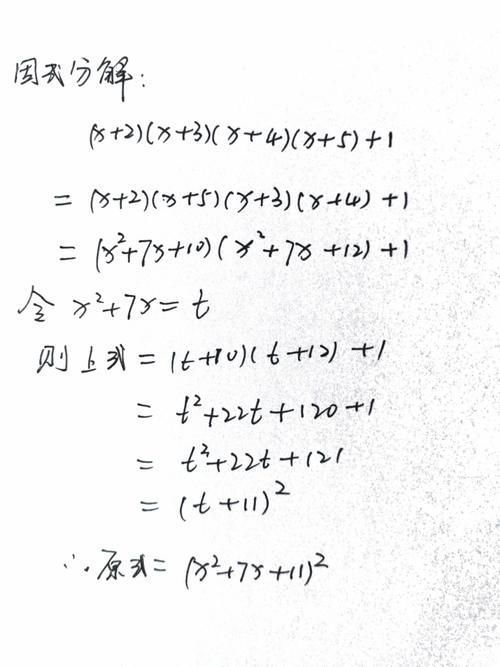 因式分解:
(x+2)(x+3)(x+4)(x+5)+1
=(x+2)(x+5)(x+3)(x+4)+1
=(x²+7x+10)(x²+7x+12)+1
令 x²+7x=t
则上式=(t+10)(t+12)+1
=t²+22t+120+1
=t²+22t+121
=(t+11)²
∴原式=(x²+7x+11)²